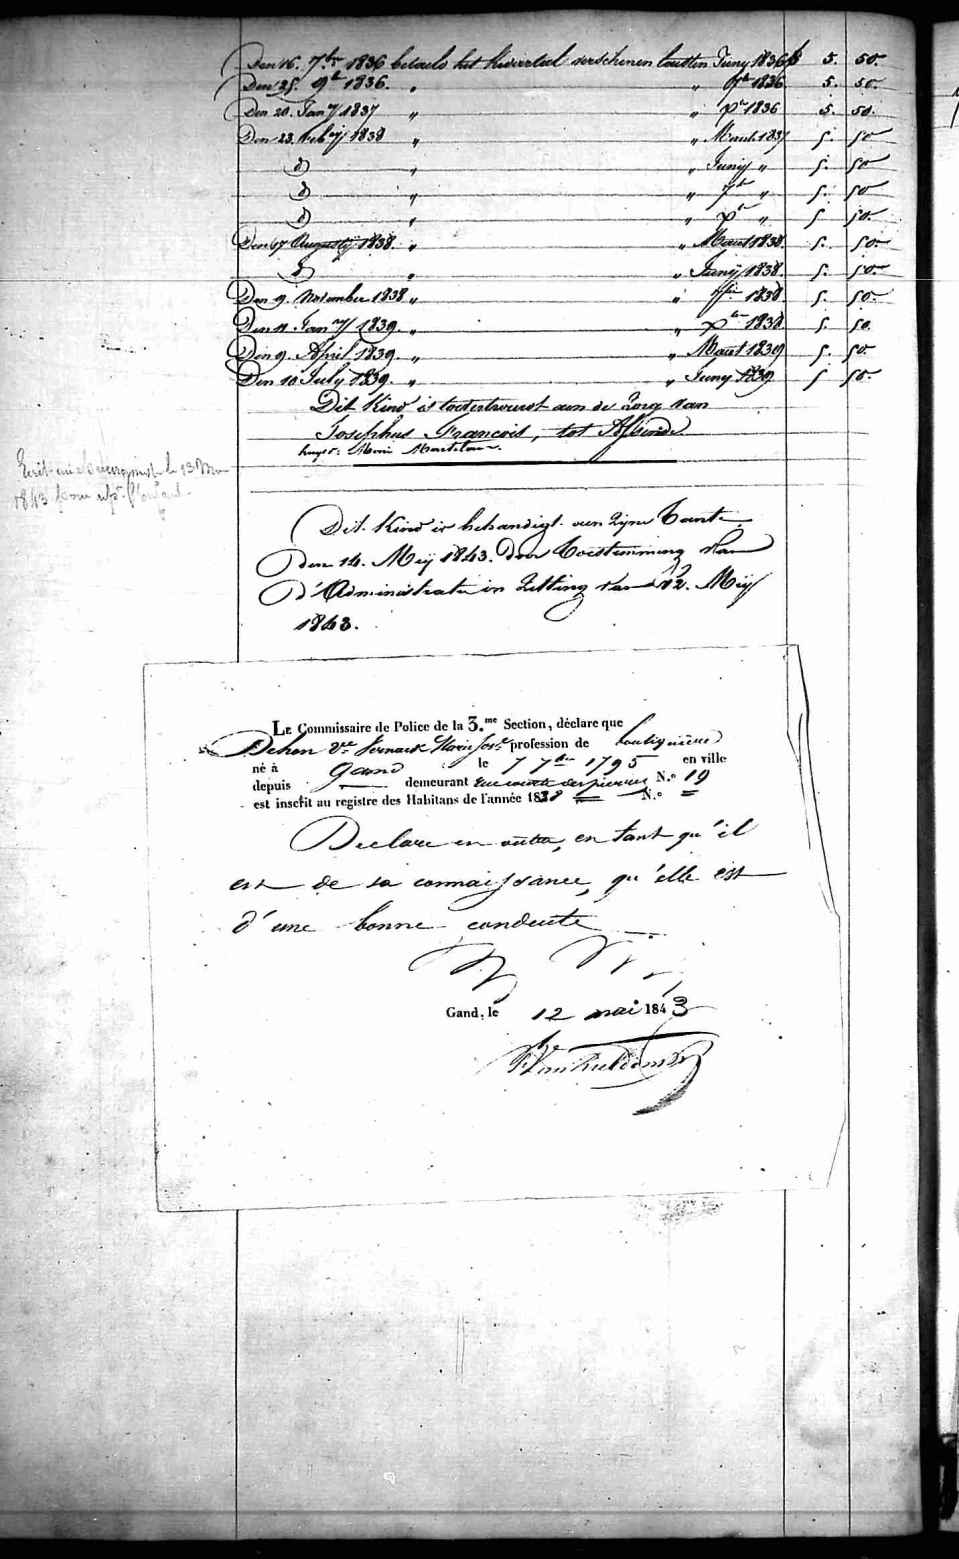 Den 16. 7bre 1836 betaeld het kwartael verschenen laetsten Juny 1836 5. 50.
Den 25. 9bre 1836. " " 7bre 1836. 5. 50.
Den 20. Jany 1837 " " Xbre 1836 5. 50.
Den 23. 1838 " " Maert 1837 5. 50
d° " " Juny " 5. 50
d° " " 7bre " 5. 50
d° " " Xbre " 5 50.
Den 17 Augusty 1838. " " Maert 1838. 5. 50.
d° " " Juny 1838. 5. 50.
Den 9. November 1838 " " 7bre 1838 5. 50.
Den 11. Jany 1839. " " Xbre 1838 5. 50.
Den 9. April 1839. " " Maert 1839 5. 50.
Den 10 July 1839. " " Juny 1839 5 50.
Dit Kind is toevertrouwt aen de zorg van
Josephus Francois, tot
huysv:
le 13 Mai
1843
Dit Kind is behandigt aen zyne Tante
den 14. Mey 1843. door toestemming van
d'Administratie in zitting van 12. Mey
1843.
Le Commissaire de Police de la 3.me Section, déclare que
Dehon Vve Marie profession de boutiquière
né à Gand le 7 7bre 1795 en ville
depuis demeurant rue courte des pierres N.º 19
est inscrit au registre des Habitans de l'année 1838 N.º
Declare en outre, en tant qu'il
est de sa connaissance, qu'elle est
d'une bonne conduite
Gand, le 12 mai 1843